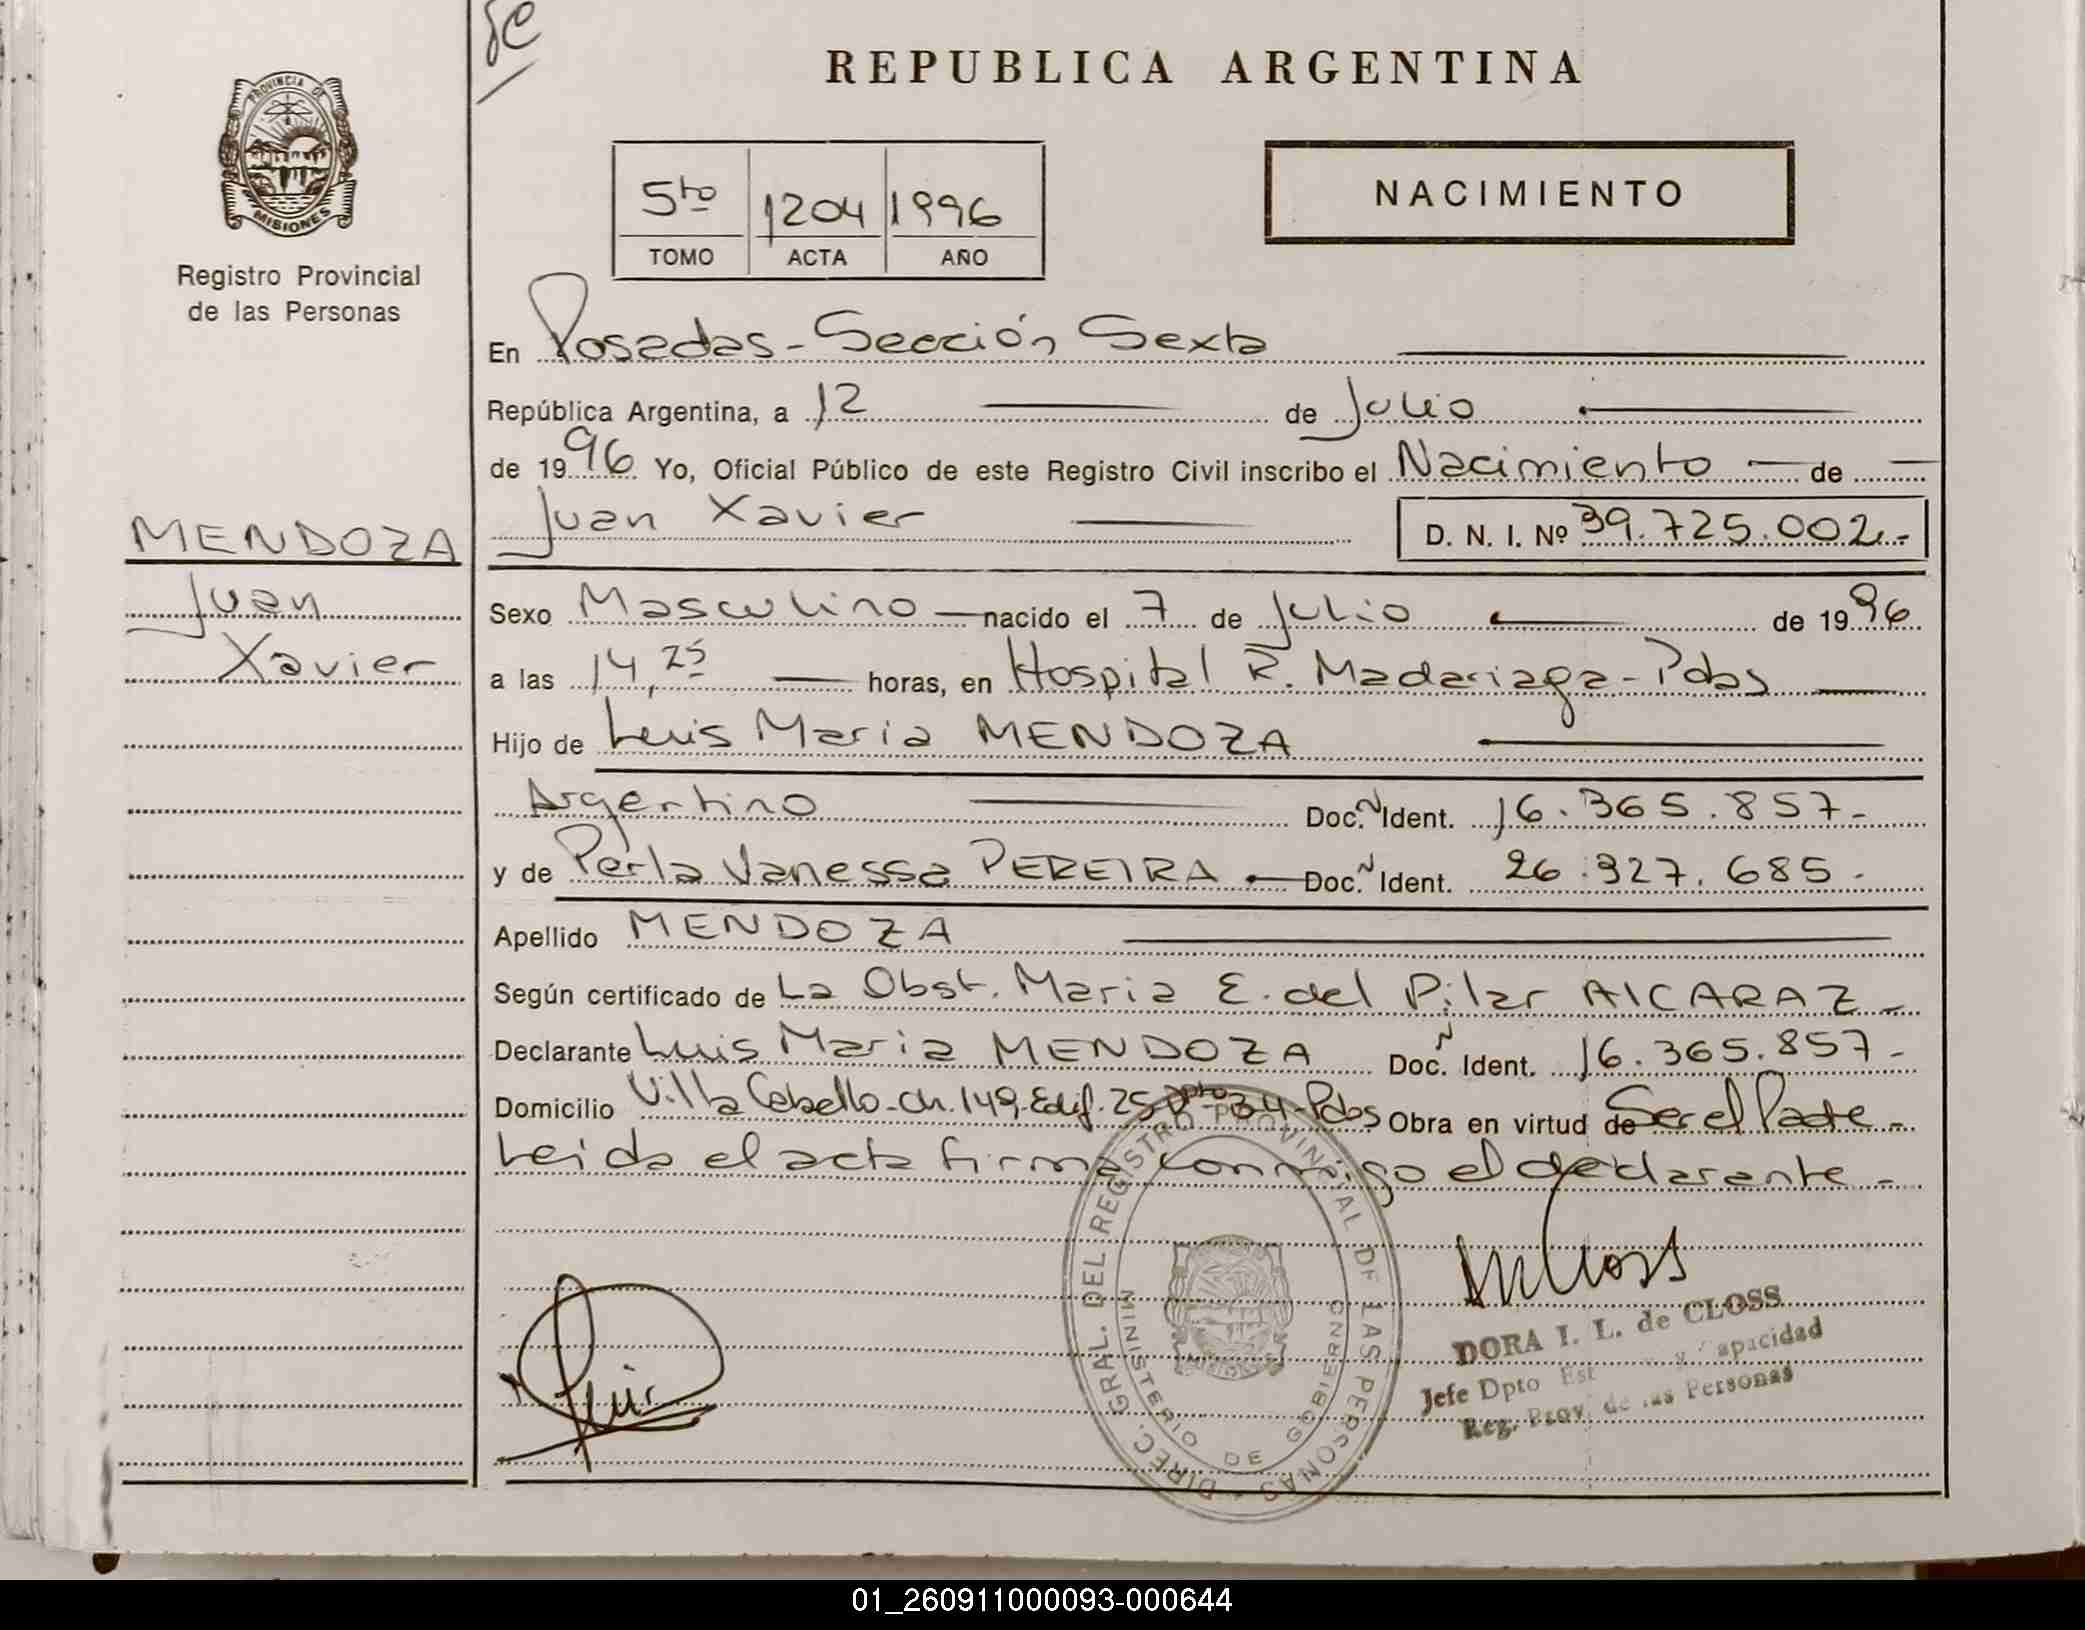 PROVINCIA DE
MISIONES
Registro Provincial
de las Personas
MENDOZA
Juan
Xavier
REPUBLICA ARGENTINA
5to 1204 1996
TOMO ACTA AÑO
NACIMIENTO
En Posadas - Sección Sexta
República Argentina, a 12 de Julio
de 1996 Yo, Oficial Público de este Registro Civil inscribo el Nacimiento de
Juan Xavier D. N. I. Nº 39.725.002.-
Sexo Masculino nacido el 7 de Julio de 1996
a las 14,25 horas, en Hospital R. Madariaga - Pdas
Hijo de Luis Maria MENDOZA
Argentino Doc. N Ident. 16.365.857-
y de Perla Vanessa PEREIRA Doc. N Ident. 26.327.685.-
Apellido MENDOZA
Según certificado de La Obst. Maria E. del Pilar AlCARAZ -
Declarante Luis Maria MENDOZA Doc. N Ident. 16.365.857-
Domicilio Villa Cabello - Ch. 149, Edif. 25 Dpto 34 - Pdas Obra en virtud de Ser el Padre -
Leida el acta firma conmigo el declarante -
DIREC. GRAL. DEL REGISTRO PROVINCIAL DE LAS PERSONAS
MINISTERIO DE GOBIERNO
DORA I. L. de CLOSS
Jefe Dpto Est y Capacidad
Reg. Prov. de las Personas
01_260911000093-000644